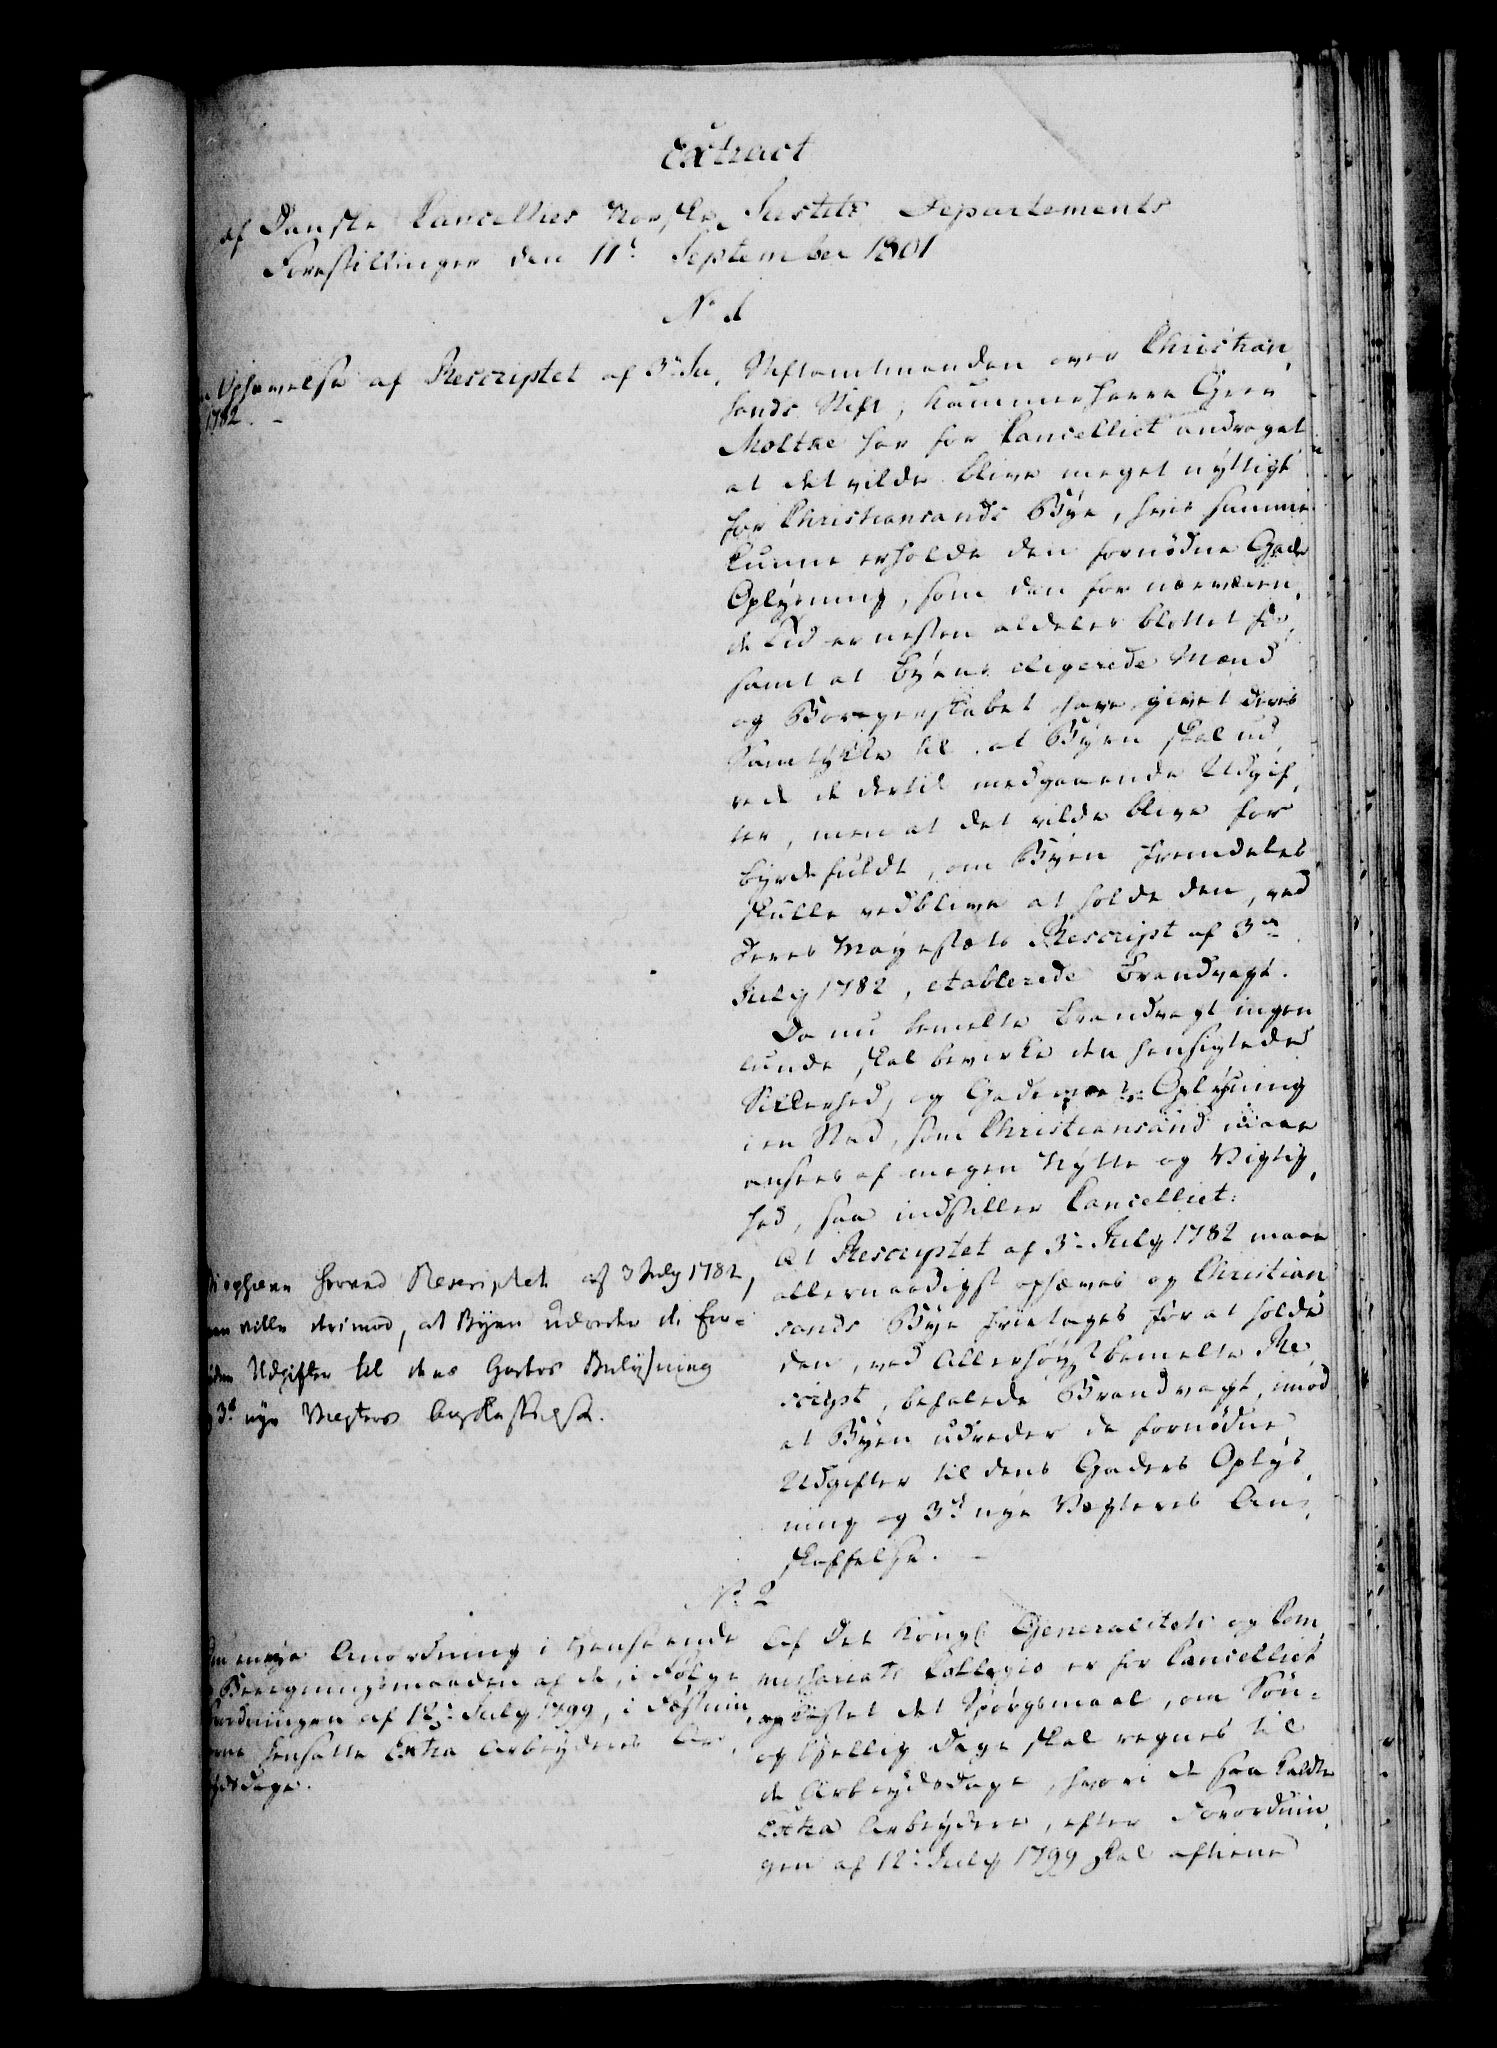 Extract
af Danske Cancellies Norske Justits Departements
Forestillinger den 11t September 1801
No 1
Ophævelse af Rescriptet af 3die Ju,
1782. -
Stiftamtmanden over Christian,
sands Stift, Kammerherre Grev
Moltke har for Cancelliet andraget
at det vilde blive meget nyttigt
for Christiansands Bye, hvis samme
kunne erholde den fornødne Gade
Oplysning, som den for nærværen,
de Tid er næsten aldeles blottet for,
samt at Byens eligerede Mænd
og Borgerskabet have givet deres
Samtykke til, at Byen skal ud,
rede de dertil medgaaende Udgif,
ter, men at det vilde blive for
byrdefuldt, om Byen fremdeles
skulle vedblive at holde den, ved
Deres Mayestæts Rescript af 3die
July 1782, etablerede Brandvagt.
Da nu bemelte Brandvagt ingen
lunde skal bevirke den hensigtede
Sikkerhed, og Gadernes Oplysning
i en Stad, som Christiansand maae
ansees af megen Nytte og Vigtig,
hed, saa indstiller Cancelliet:
At Rescriptet af 3die July 1782 maae
allernaadigst ophæves og Christian
sands Bye fritages for at holde
den, ved Allerhøystbemelte Re,
script, befalede Brandvagt, imod
at Byen udreder de fornødne
Udgifter til dens Gaders Oplys,
ning og 3de nye Vægteres An,
skaffelse. -
Vi ophæve herved Rescriptet af 3 July 1782,
men ville derimod, at Byen udreder de for-
nødne Udgifter til dens Gaders Belysning
og 3de nye Vægteres Anskaffelse.
No 2
Om nøye Anordning i Henseende
Beregningsmaaden af de, i Følge
Forordningen af 12te July 1799, i Fæstnin,
gerne hensatte Extra Arbeyderes Ar,
beydsdage.
Af Det Kongl Generalitets og Com,
missariats Collegio er for Cancelliet
opkastet det Spørgsmaal, om Søn-
og Hellig Dage skal regnes til
de Arbeydsdage, hvori de saa kaldte
Extra Arbeydere, efter Forordnin,
gen af 12te July 1799 skal aftiene